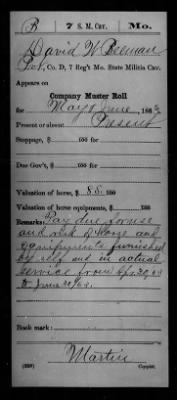 B 7 S. M. Cav. Mo.
David W Beeman
Pvt, Co. D, 7 Reg't Mo. State Militia Cav.
Appears on
Company Muster Roll
for May & June, 186
Present or absent Present
Stoppage, $ 100 for
Due Gov't, $ 100 for
Valuation of horse, $ 85. 100
Valuation of horse equipments, $ 100
Remarks: Pay due for use
and risk of horse and
equipments furnished
by self and in actual
service from
to June 30/63.
Book mark:
Martin
Copyist.